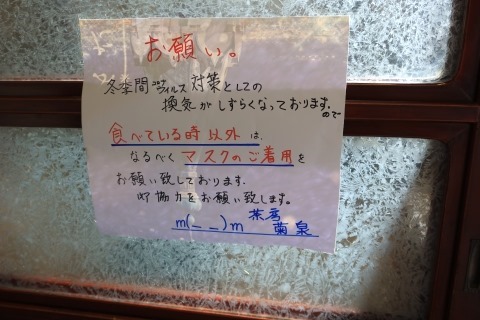 お願い。
冬季間コロナウイルス対策としての
換気がしずらくなっております。ので
食べている時以外は、
なるべくマスクのご着用を
お願い致しております。
御協力をお願い致します。
m(_ _)m 茶房
菊泉